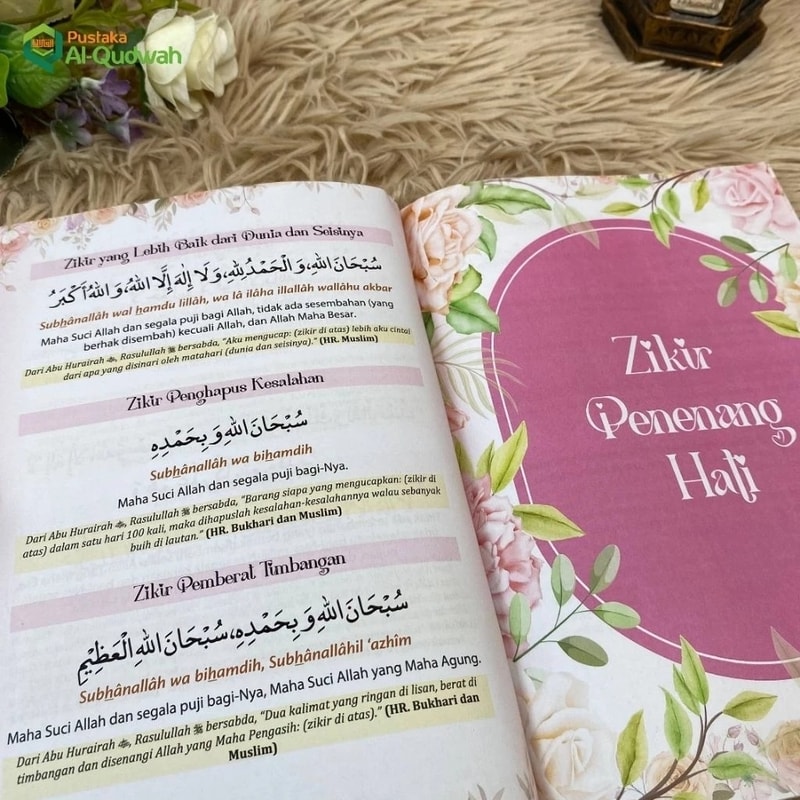 Pustaka
Al-Qudwah
Zikir yang Lebih Baik dari Dunia dan Seisinya
سُبْحَانَ اللهِ، وَالْحَمْدُ لِلهِ، وَلَا إِلٰهَ إِلَّا اللهُ، وَاللهُ أَكْبَرُ
Subhânallâh wal hamdu lillâh, wa lâ ilâha illallâh wallâhu akbar
Maha Suci Allah dan segala puji bagi Allah, tidak ada sesembahan (yang
berhak disembah) kecuali Allah, dan Allah Maha Besar.
Dari Abu Hurairah ﷺ, Rasulullah ﷺ bersabda, "Aku mengucap: (zikir di atas) lebih aku cintai
dari apa yang disinari oleh matahari (dunia dan seisinya)." (HR. Muslim)
Zikir Penghapus Kesalahan
سُبْحَانَ اللهِ وَبِحَمْدِهِ
Subhânallâh wa bihamdih
Maha Suci Allah dan segala puji bagi-Nya.
Dari Abu Hurairah, Rasulullah ﷺ bersabda, "Barang siapa yang mengucapkan: (zikir di
atas) dalam satu hari 100 kali, maka dihapuslah kesalahan-kesalahannya walau sebanyak
buih di lautan." (HR. Bukhari dan Muslim)
Zikir Pemberat Timbangan
سُبْحَانَ اللهِ وَبِحَمْدِهِ، سُبْحَانَ اللهِ الْعَظِيْمِ
Subhânallâh wa bihamdih, Subhânallâhil 'azhîm
Maha Suci Allah dan segala puji bagi-Nya, Maha Suci Allah yang Maha Agung.
Dari Abu Hurairah, Rasulullah ﷺ bersabda, "Dua kalimat yang ringan di lisan, berat di
timbangan dan disenangi Allah yang Maha Pengasih: (zikir di atas)." (HR. Bukhari dan
Muslim)
Zikir
Penenang
Hati